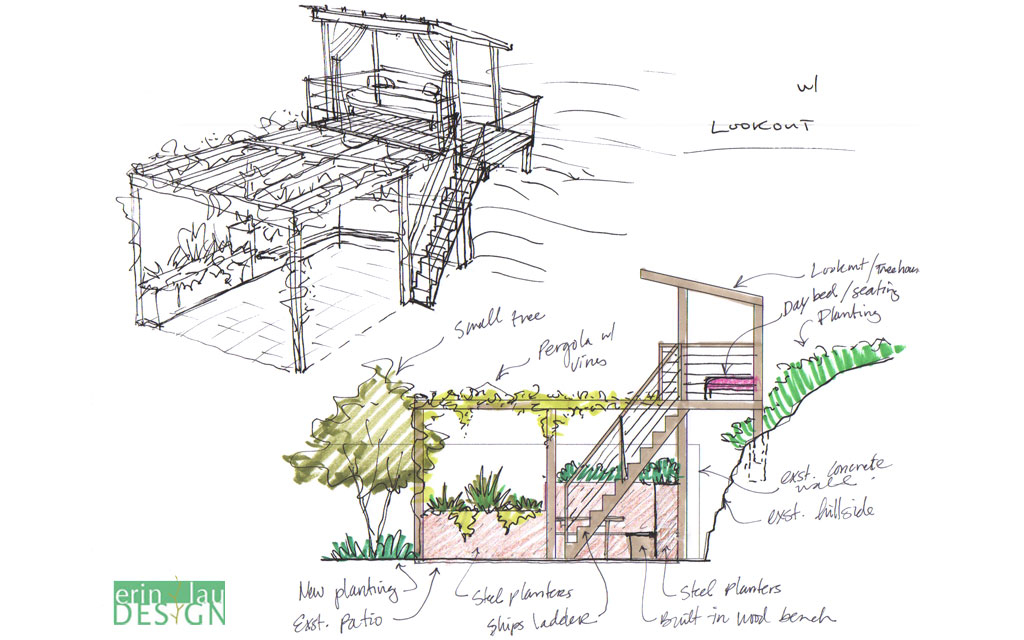 w/
LOOKOUT
Lookout/Treehous
Day bed/seating
Planting
Small tree
Pergola w/
vines
exst. concrete
wall
exst. hillside
New planting
Exst. patio
Steel planters
Ships ladder
Steel planters
Built in wood bench
erin lau
DESIGN